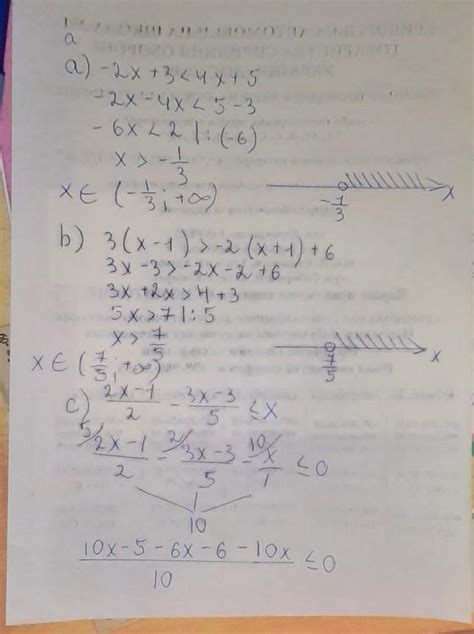 a
a) -2x+3<4x+5
-2x-4x<5-3
-6x<2 |:(-6)
x>-1/3
x∈(-1/3; +∞)
-1/3 x
b) 3(x-1)>-2(x+1)+6
3x-3>-2x-2+6
3x+2x>4+3
5x>7 |:5
x>7/5
x∈(7/5; +∞)
7/5 x
c) (2x-1)/2 - (3x-3)/5 ≤ x
5/ (2x-1)/2 - 2/ (3x-3)/5 - 10/ x/1 ≤ 0
10
(10x-5-6x-6-10x)/10 ≤ 0